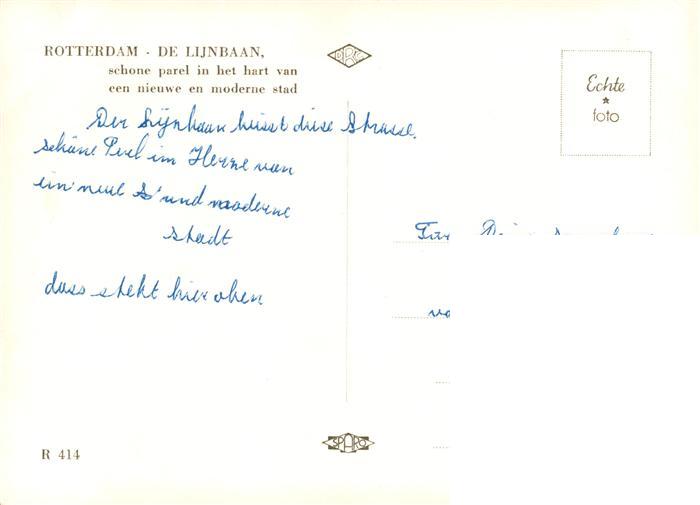 ROTTERDAM - DE LIJNBAAN,
schone parel in het hart van
een nieuwe en moderne stad
Echte
foto
Der Lijnbaan heisst diese Strasse.
schöne Perl im Herne van
ein neue und moderne
stadt
dass stekt hier oben
SPARO
R 414